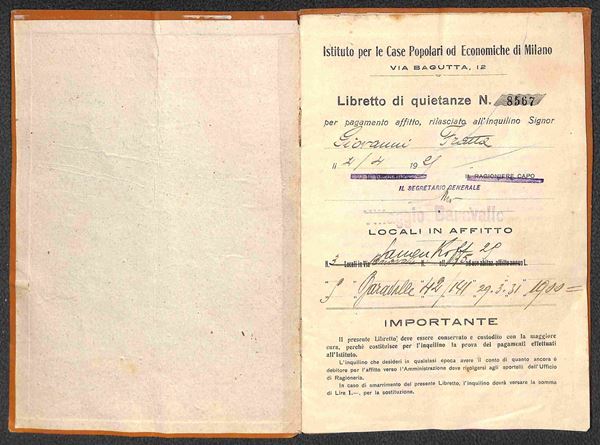 Istituto per le Case Popolari od Economiche di Milano
VIA BAGUTTA, 12
Libretto di quietanze N. 8567
per pagamento affitto, rilasciato all'inquilino Signor
Giovanni
il 2/4 19
IL RAGIONIERE CAPO
IL SEGRETARIO GENERALE
Villaggio Baravalle
LOCALI IN AFFITTO
N. 3 Locali in Via N. ad uso abitaz. affitto annuo L.
3 Baravalle 42/141 29.3.31 1900=
IMPORTANTE
Il presente Libretto deve essere conservato e custodito con la maggiore
cura, perchè costituisce per l'inquilino la prova dei pagamenti effettuati
all'Istituto.
L'inquilino che desideri in qualsiasi epoca avere il conto di quanto ancora è
debitore per l'affitto verso l'Amministrazione deve rivolgersi agli sportelli dell'Ufficio
di Ragioneria.
In caso di smarrimento del presente Libretto, l'inquilino dovrà versare la somma
di Lire 1.—, per la sostituzione.